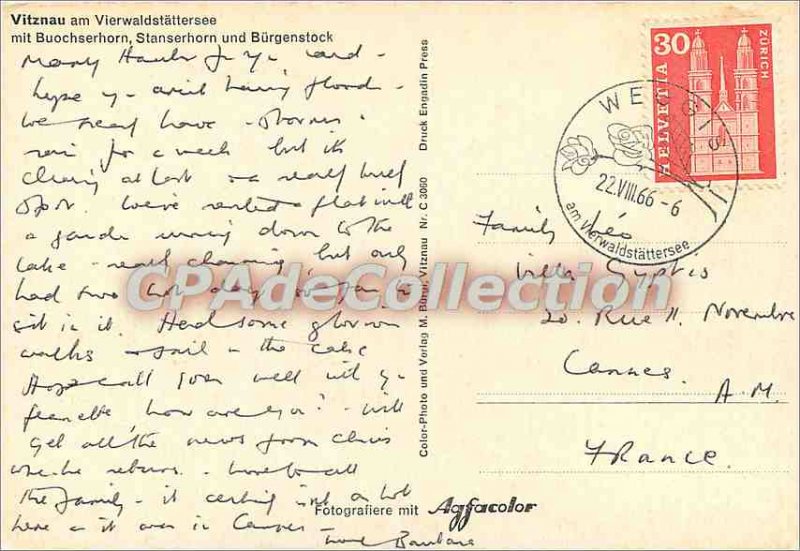 Vitznau am Vierwaldstättersee
mit Buochserhorn, Stanserhorn und Bürgenstock
Many thanks for yr card -
hope yr arent being flood -
We really have - glorious -
rain for a week but its
clearing at last - a really
spot. We've rented a flat with
a garden running down to the
lake - really charming, but only
had two hot days so far to
sit in it. Had some glorious
walks & sail on the lake
Hope all goes well with yr
how are you? - will
get all the news from Chris
when he returns. - Love to all
the family - it certainly isnt as hot
here as it was in Cannes -
love Barbara
Druck Engadin Press
Color-Photo und Verlag M. Bürgi, Vitznau Nr. C 3060
Fotografiere mit Agfacolor
HELVETIA 30 ZÜRICH
WEGGIS
22.VIII.66-6
am Vierwaldstättersee
Family
Villa Gyptis
20. Rue 11. Novembre
Cannes.
A.M.
France.
CPAdeCollection